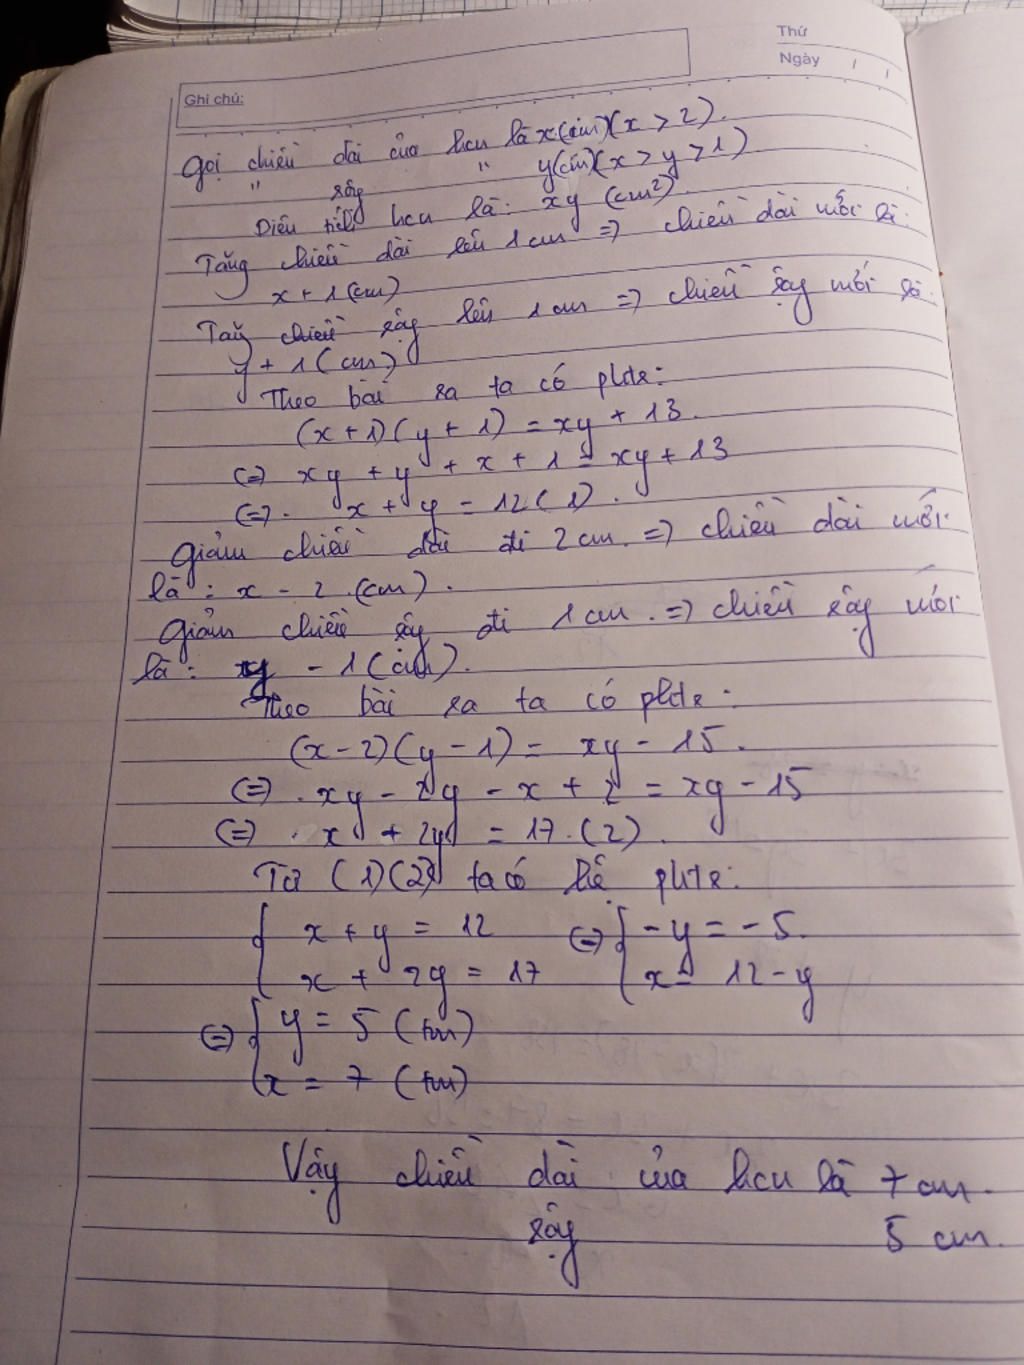 Thứ
Ngày / /
Ghi chú:
Gọi chiều dài của hcn là x(cm)(x > 2).
" rộng " y(cm)(x > y > 1)
Diện tích hcn là: xy (cm²)
Tăng chiều dài lên 1 cm => chiều dài mới là:
x + 1 (cm)
Tăng chiều rộng lên 1 cm => chiều rộng mới là
y + 1 (cm)
Theo bài ra ta có phtr:
(x+1)(y+1) = xy + 13.
(=) xy + y + x + 1 = xy + 13
(=) x + y = 12 (1).
Giảm chiều dài đi 2 cm. => chiều dài mới
là: x - 2 (cm).
Giảm chiều rộng đi 1 cm. => chiều rộng mới
là: y - 1 (cm).
Theo bài ra ta có phtr:
(x-2)(y-1) = xy - 15.
(=) xy - 2y - x + 2 = xy - 15
(=) x + 2y = 17. (2).
Từ (1)(2) ta có hệ phtr:
x + y = 12 (=) -y = -5.
x + 2y = 17 x = 12 - y
(=) y = 5 (tm)
x = 7 (tm)
Vậy chiều dài của hcn là 7 cm.
rộng 5 cm.